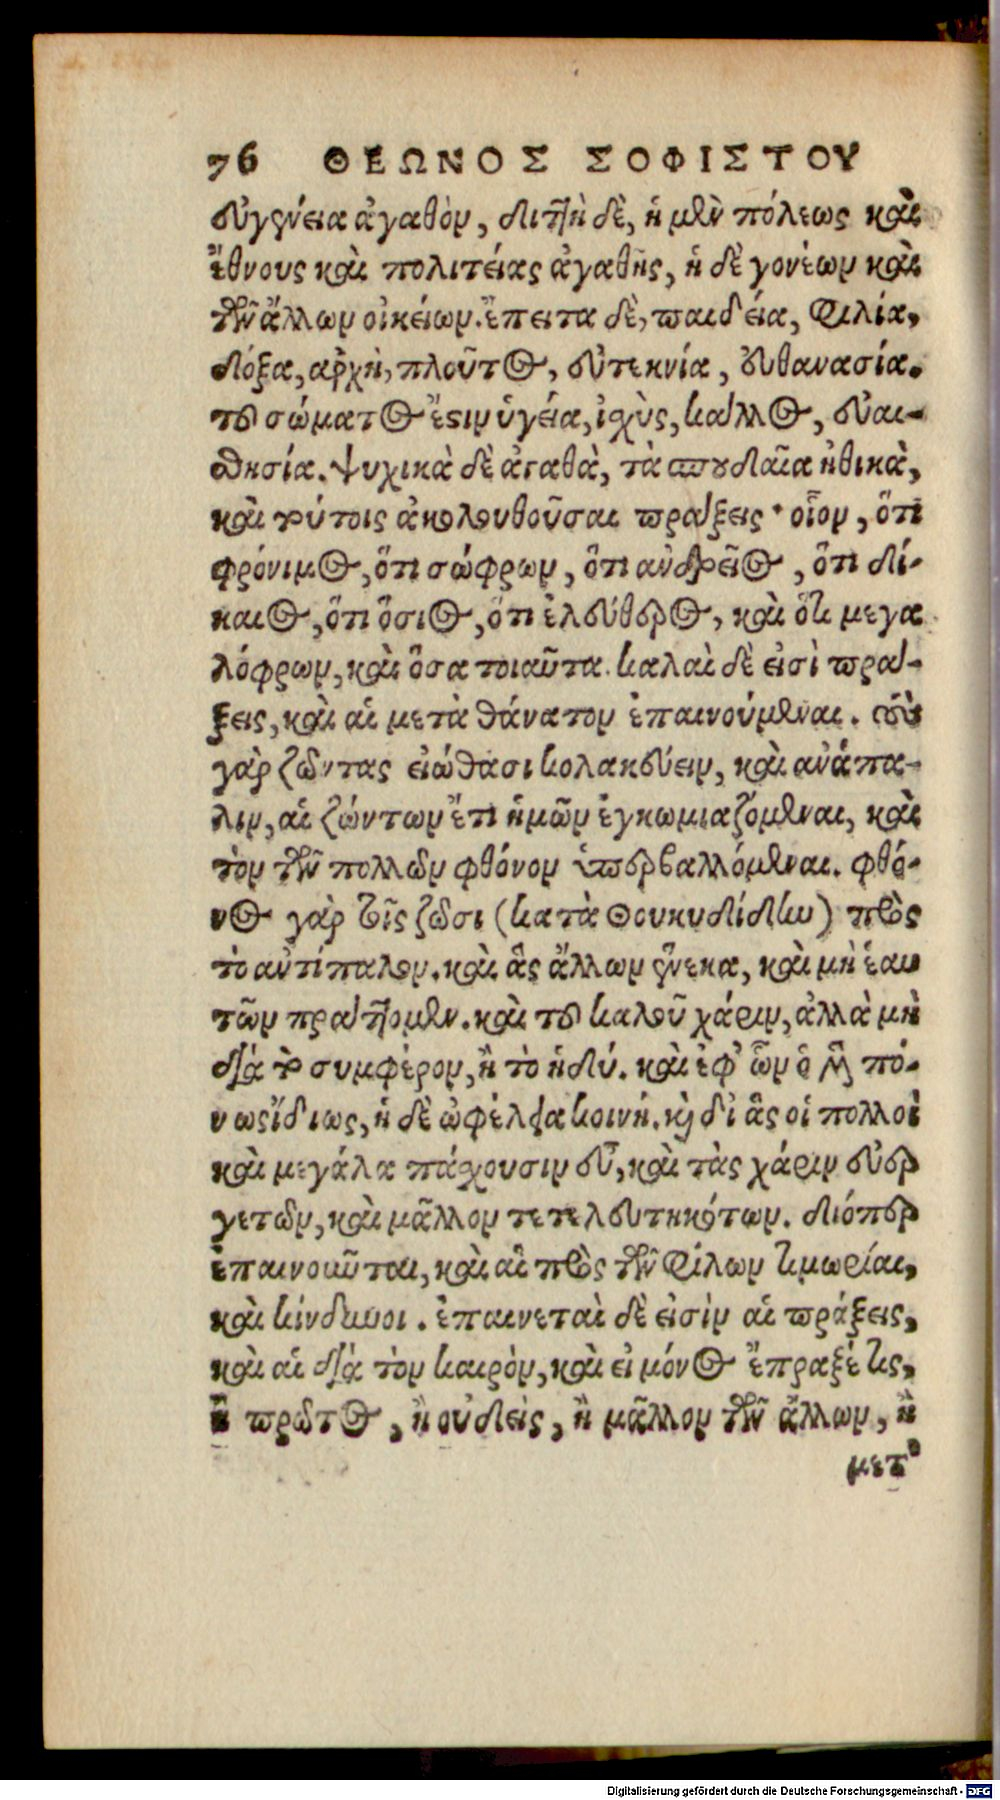 76 ΘΕΩΝΟΣ ΣΟΦΙΣΤΟΥ
εὐγένεια ἀγαθὸν, διττὴ δὲ, ἡ μὲν πόλεως καὶ
ἔθνους καὶ πολιτείας ἀγαθῆς, ἡ δὲ γονέων καὶ
τῶν ἄλλων οἰκείων. ἔπειτα δὲ, παιδεία, φιλία,
δόξα, ἀρχὴ, πλοῦτος, εὐτεκνία, εὐθανασία.
τοῦ σώματος ἔστιν ὑγεία, ἰσχὺς, κάλλος, εὐαι-
σθησία. ψυχικὰ δὲ ἀγαθὰ, τὰ σπουδαῖα ἠθικὰ,
καὶ τούτοις ἀκολουθοῦσαι πράξεις· οἷον, ὅτι
φρόνιμος, ὅτι σώφρων, ὅτι ἀνδρεῖος, ὅτι δί-
καιος, ὅτι ὅσιος, ὅτι ἐλεύθερος, καὶ ὅτι μεγα
λόφρων, καὶ ὅσα τοιαῦτα. καλαὶ δὲ εἰσὶ πρά-
ξεις, καὶ αἱ μετὰ θάνατον ἐπαινούμεναι. τοὺς
γὰρ ζῶντας εἰώθασι κολακεύειν, καὶ ἀνάπα-
λιν, αἱ ζώντων ἔτι ἡμῶν ἐγκωμιαζόμεναι, καὶ
τὸν τῶν πολλῶν φθόνον ὑπερβαλλόμεναι. φθό-
νος γὰρ τοῖς ζῶσι (κατὰ Θουκυδίδην) πρὸς
τὸ ἀντίπαλον. καὶ ἃς ἄλλων ἕνεκα, καὶ μὴ ἑαυ
τῶν πράττομεν. καὶ τοῦ καλοῦ χάριν, ἀλλὰ μὴ
διὰ τὸ συμφέρον, ἢ τὸ ἡδύ. καὶ ἐφ' ὧν ὁ μὲν πό-
νως ἴδιως, ἡ δὲ ὠφέλεια κοινή. καὶ δι' ἃς οἱ πολλοὶ
καὶ μεγάλα πάσχουσιν εὖ, καὶ τὰς χάριν εὐερ
γετῶν, καὶ μᾶλλον τετελευτηκότων. διόπερ
ἐπαινοῦνται, καὶ αἱ πρὸς τῶν φίλων τιμωρίαι,
καὶ κίνδυνοι. ἐπαινεταὶ δὲ εἰσὶν αἱ πράξεις,
καὶ αἱ διὰ τὸν καιρὸν, καὶ εἰ μόνος ἔπραξέ τις,
ἢ πρῶτος, ἢ οὐδεὶς, ἢ μᾶλλον τῶν ἄλλων, ἢ
μετ'
Digitalisierung gefördert durch die Deutsche Forschungsgemeinschaft - DFG